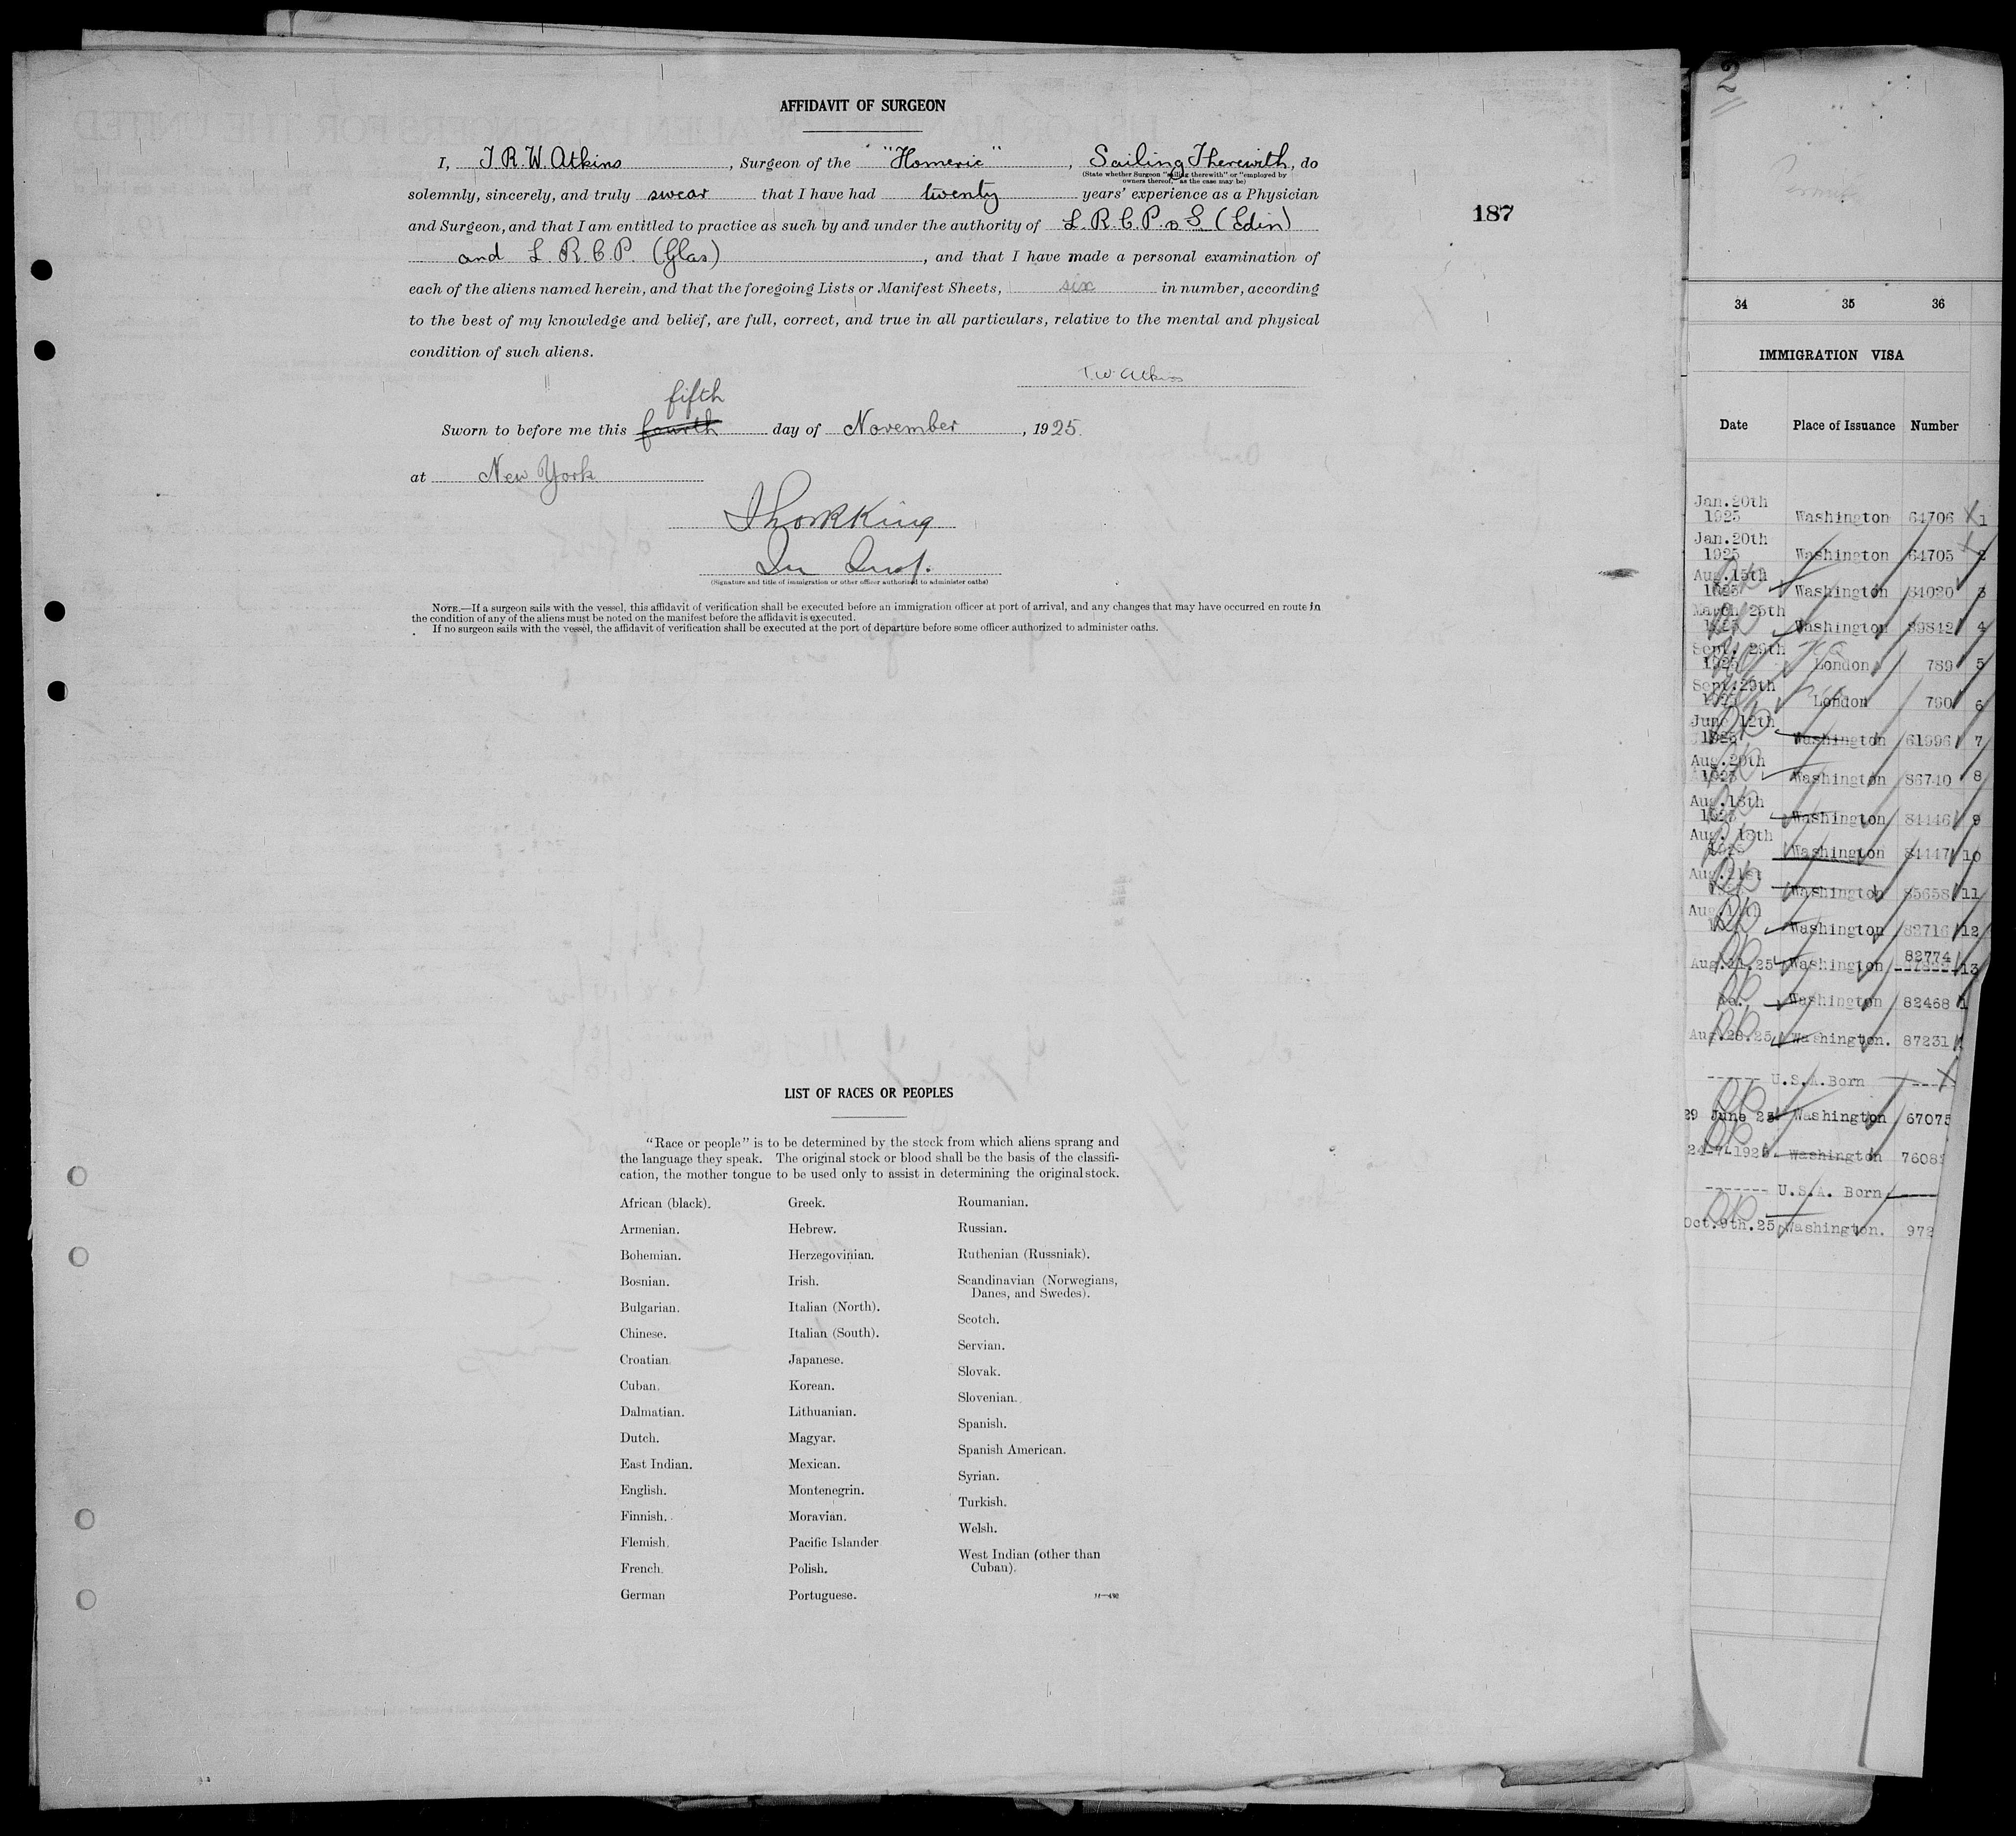 AFFIDAVIT OF SURGEON
I, T.R.W. Atkins, Surgeon of the "Homeric", Sailing Therewith, do
(State whether Surgeon "sailing therewith" or "employed by
owners thereof," as the case may be)
solemnly, sincerely, and truly swear that I have had twenty years' experience as a Physician
and Surgeon, and that I am entitled to practice as such by and under the authority of L.R.C.P. o S (Edin)
and L.R.C.P. (Glas), and that I have made a personal examination of
each of the aliens named herein, and that the foregoing Lists or Manifest Sheets, six in number, according
to the best of my knowledge and belief, are full, correct, and true in all particulars, relative to the mental and physical
condition of such aliens.
T.W. Atkins
fifth
Sworn to before me this fourth day of November, 1925.
at New York
(Signature and title of immigration or other officer authorized to administer oaths)
NOTE.—If a surgeon sails with the vessel, this affidavit of verification shall be executed before an immigration officer at port of arrival, and any changes that may have occurred en route in
the condition of any of the aliens must be noted on the manifest before the affidavit is executed.
If no surgeon sails with the vessel, the affidavit of verification shall be executed at the port of departure before some officer authorized to administer oaths.
187
LIST OF RACES OR PEOPLES
"Race or people" is to be determined by the stock from which aliens sprang and
the language they speak. The original stock or blood shall be the basis of the classifi-
cation, the mother tongue to be used only to assist in determining the original stock.
African (black).
Armenian.
Bohemian.
Bosnian.
Bulgarian.
Chinese.
Croatian.
Cuban.
Dalmatian.
Dutch.
East Indian.
English.
Finnish.
Flemish.
French.
German
Greek.
Hebrew.
Herzegovinian.
Irish.
Italian (North).
Italian (South).
Japanese.
Korean.
Lithuanian.
Magyar.
Mexican.
Montenegrin.
Moravian.
Pacific Islander
Polish.
Portuguese.
Roumanian.
Russian.
Ruthenian (Russniak).
Scandinavian (Norwegians,
Danes, and Swedes).
Scotch.
Servian.
Slovak.
Slovenian.
Spanish.
Spanish American.
Syrian.
Turkish.
Welsh.
West Indian (other than
Cuban).
2
34 35 36
IMMIGRATION VISA
Date Place of Issuance Number
Jan.20th
1925 Washington 64706 X 1
Jan.20th
1925 Washington 64705 2
Aug.15th
1925 Washington 84020 3
March 25th
Washington 89842 4
Sept. 29th
1925 London 789 5
Sept.29th
London 790 6
June 12th
1925 Washington 61996 7
Aug.20th
1925 Washington 86740 8
Aug.18th
1925 Washington 84446 9
Aug. 18th
Washington 84447 10
Aug.21st
Washington 85658 11
Washington 83716 12
82774
Aug.11.25 Washington 13
do. Washington 82468
Aug.28.25 Washington. 87231
------ U.S.A.Born ---
29 June 25 Washington 67075
24-7-1925 Washington 7608
------- U.S.A. Born
Oct.9th.25 Washington. 972